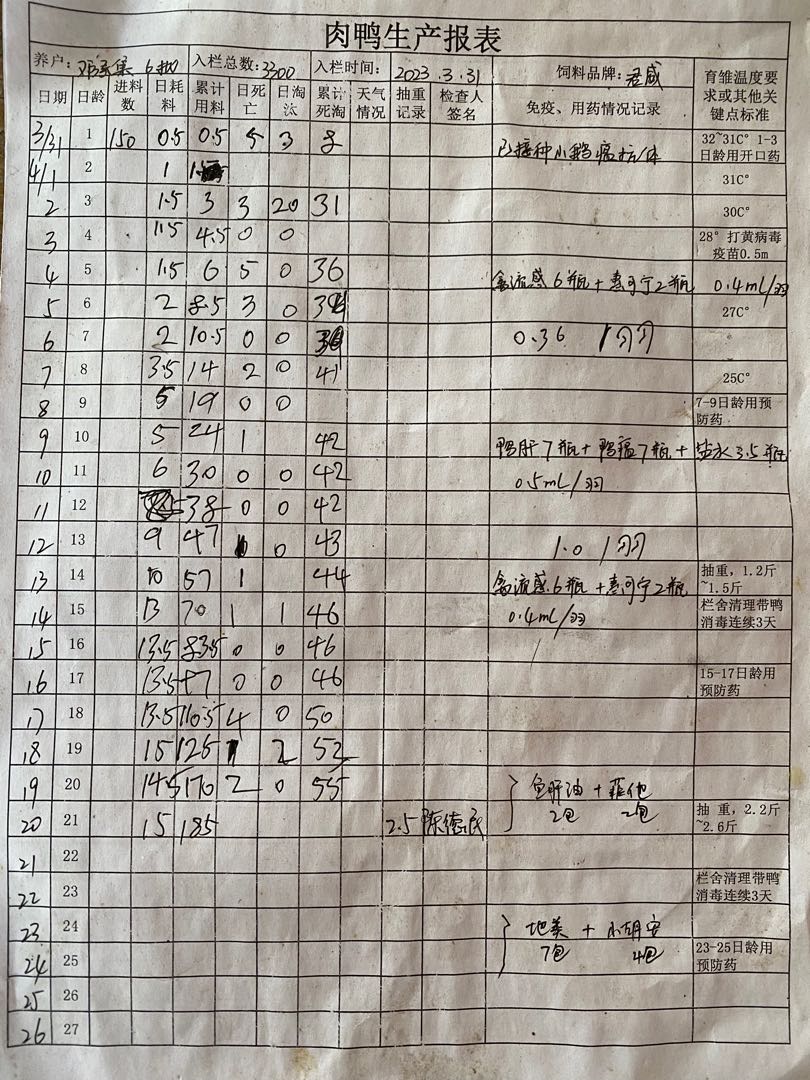 肉鸭生产报表
养户: 6批 入栏总数:3300 入栏时间: 2023.3.31 饲料品牌:君威 育雏温度要求或其他关键点标准
日期 日龄 进料数 日耗料 累计用料 日死亡 日淘汰 累计死淘 天气情况 抽重记录 检查人签名 免疫、用药情况记录
3/31 1 150 0.5 0.5 5 3 8 已接种小鹅瘟抗体 32~31C° 1-3日龄用开口药
4/1 2 1 31C°
2 3 1.5 3 3 20 31 30C°
3 4 1.5 4.5 0 0 28° 打黄病毒疫苗0.5m
4 5 1.5 6 5 0 36 禽流感6瓶+惠可宁2瓶 0.4mL/羽
5 6 2 8.5 3 0 27C°
6 7 2 10.5 0 0 0.36 /羽
7 8 3.5 14 2 0 41 25C°
8 9 5 19 0 0 7-9日龄用预防药
9 10 5 24 1 42 鸭肝7瓶+鸭瘟7瓶+盐水3.5瓶
10 11 6 30 0 0 42 0.5mL/羽
11 12 38 0 0 42
12 13 9 47 0 43 1.0 /羽
13 14 10 57 1 44 禽流感6瓶+惠可宁2瓶 抽重，1.2斤~1.5斤
14 15 13 70 1 1 46 0.4mL/羽 栏舍清理带鸭消毒连续3天
15 16 13.5 83.5 0 0 46
16 17 13.5 0 0 46 15-17日龄用预防药
17 18 13.5 110.5 4 0 50
18 19 15 125 1 2 52
19 20 14.5 170 2 0 55 鱼肝油+
20 21 15 185 2.5 陈德民 2包 2包 抽 重，2.2斤~2.6斤
21 22
22 23 栏舍清理带鸭消毒连续3天
23 24 地美+
24 25 7包 4包 23-25日龄用预防药
25 26
26 27